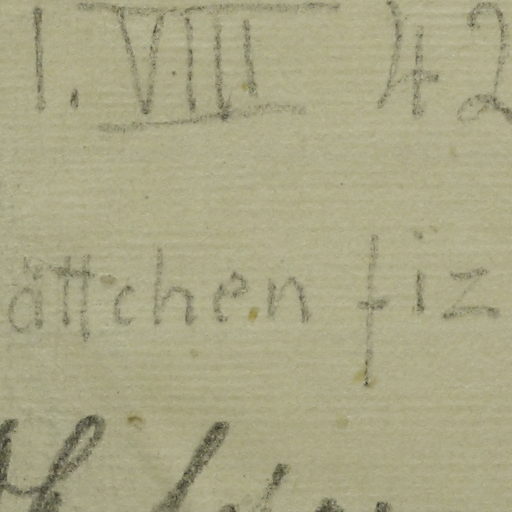 1. VIII 42
ättchen fiz